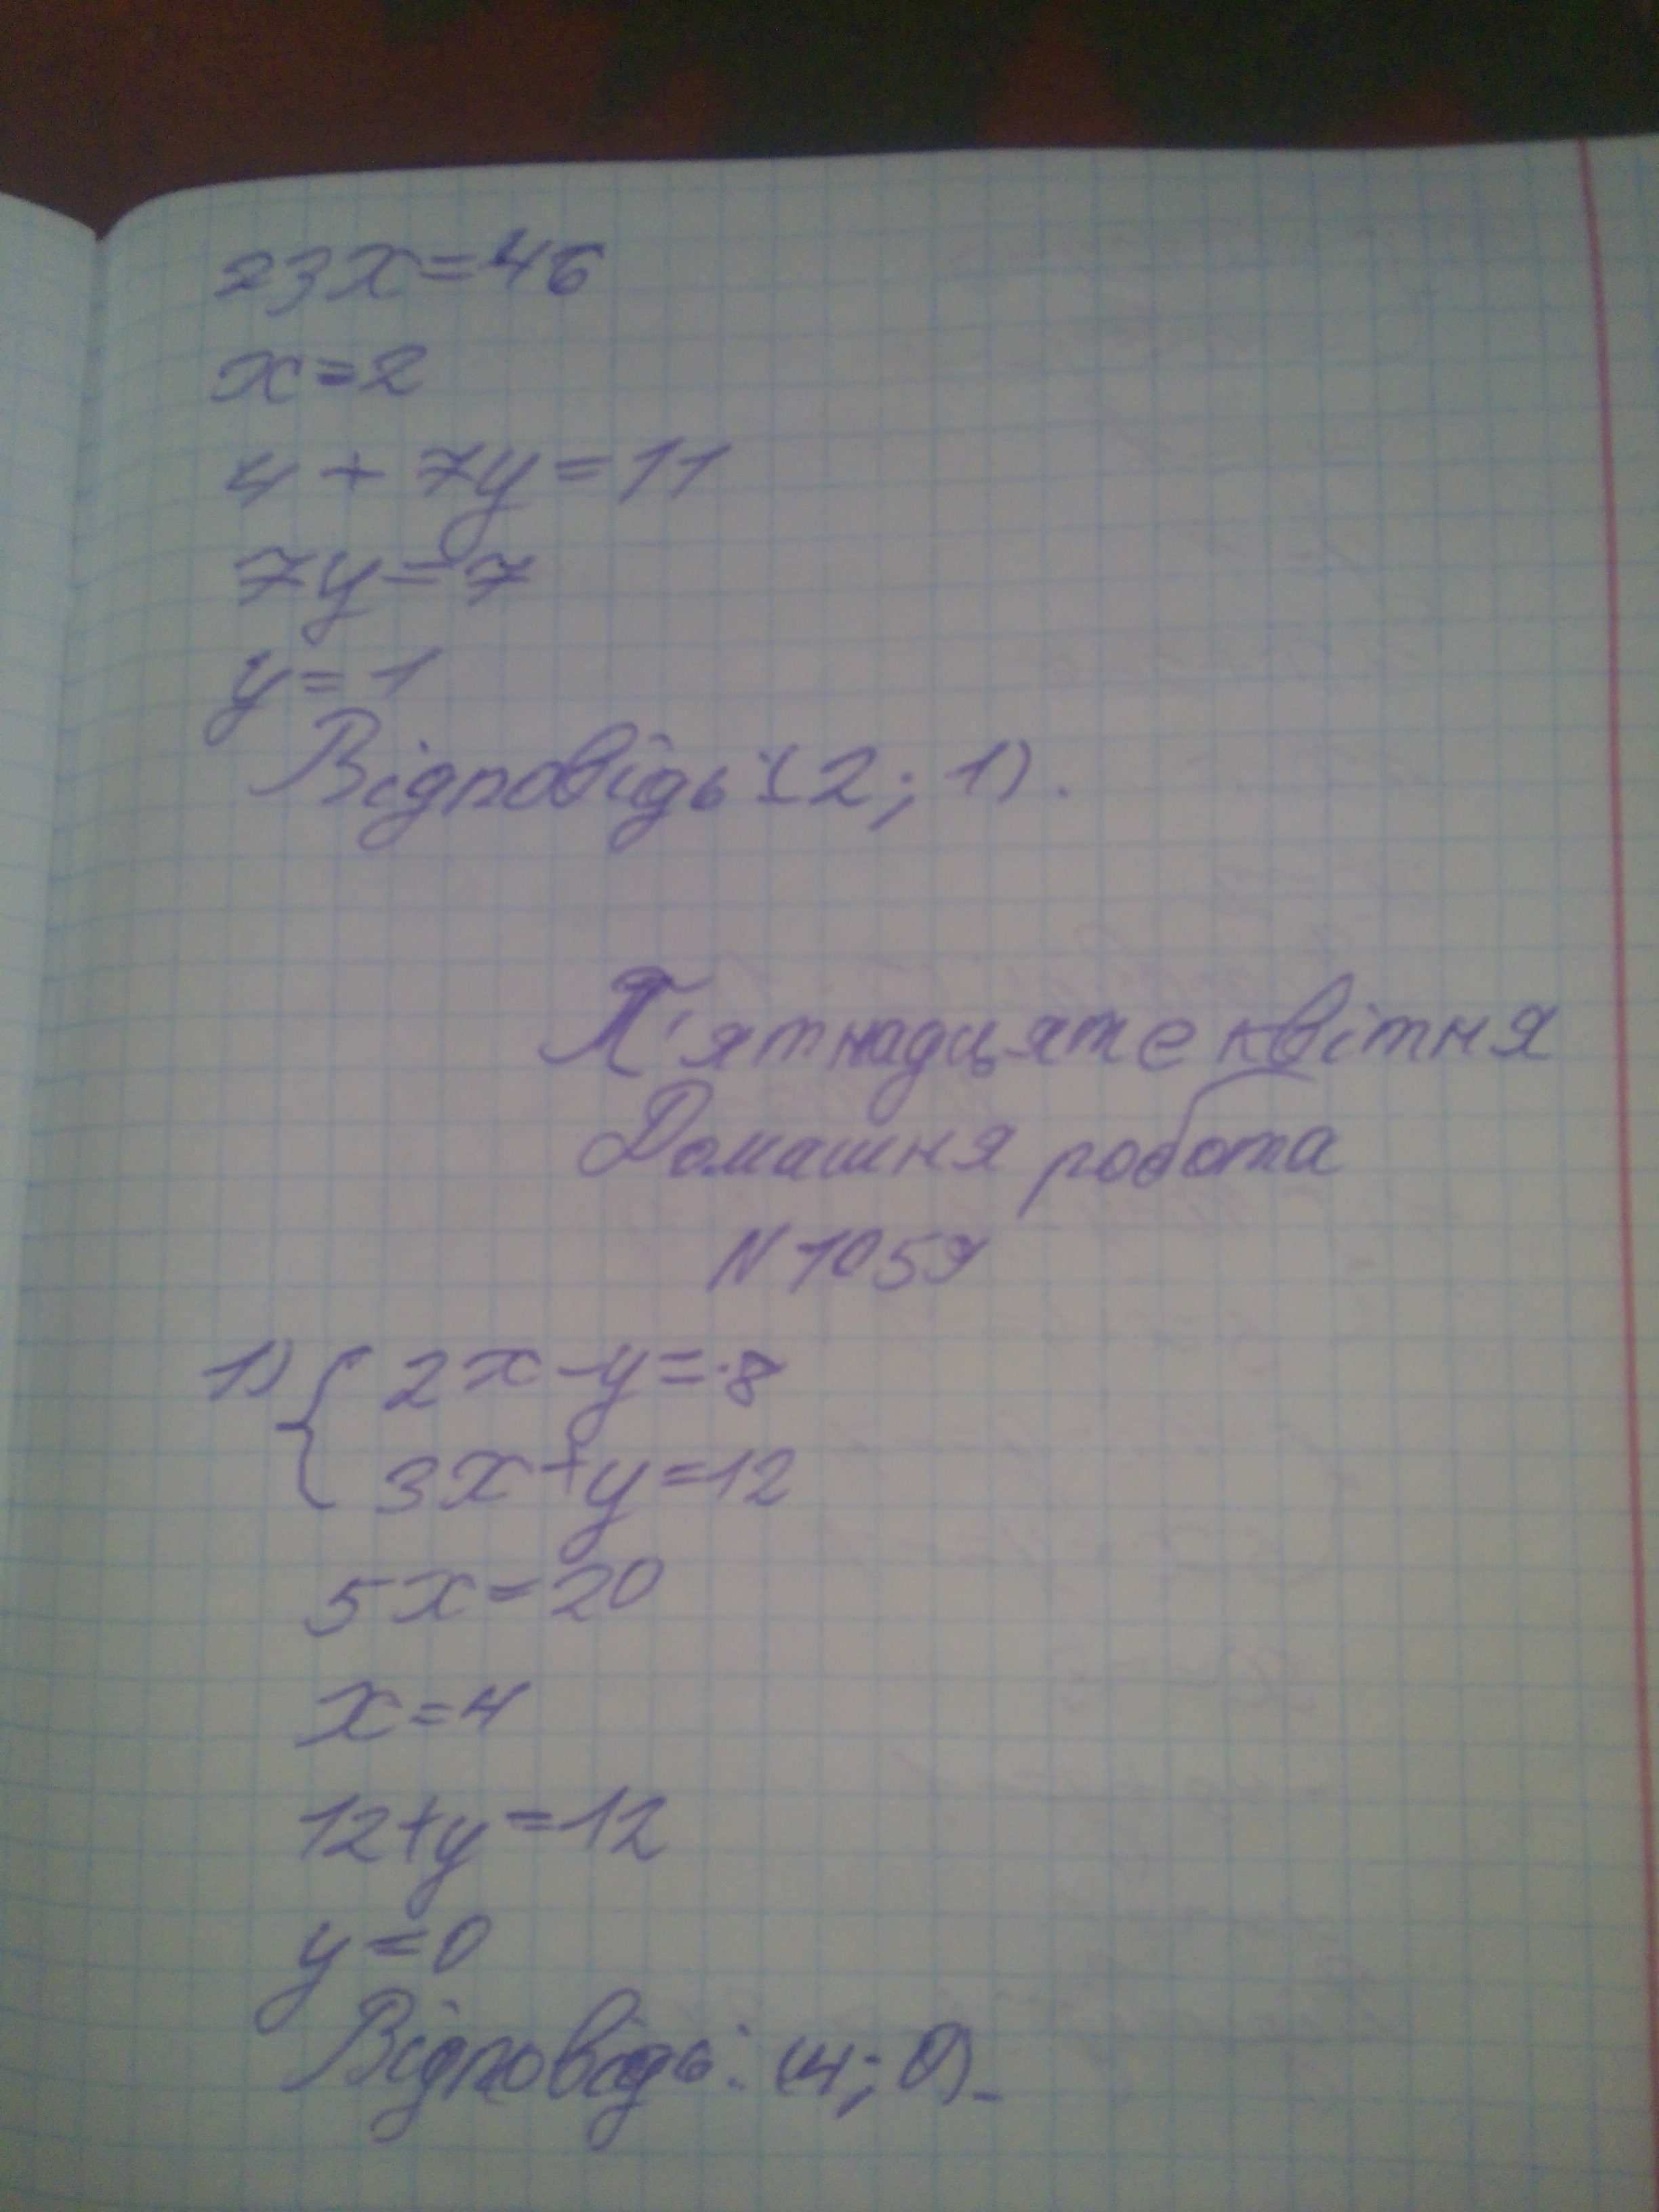 23x=46
x=2
4+7y=11
7y=7
y=1
Відповідь:(2;1).
П'ятнадцяте квітня
Домашня робота
N1059
1) { 2x-y=8
3x+y=12
5x=20
x=4
12+y=12
y=0
Відповідь: (4;0).